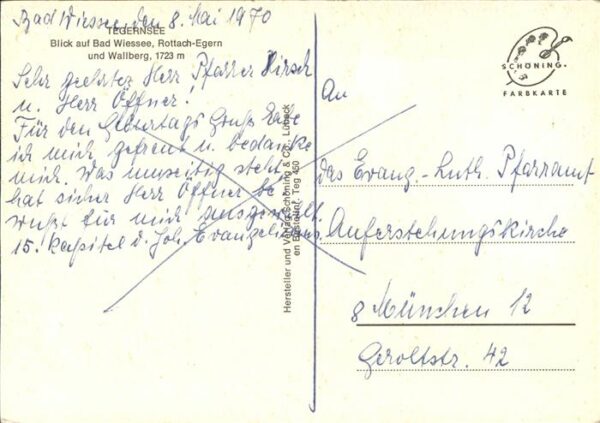 Bad Wiessee, den 8. Mai 1970
TEGERNSEE
Blick auf Bad Wiessee, Rottach-Egern
und Wallberg, 1723 m
Sehr geehrter Herr Pfarrer Hirsch
u. Herr Öffner!
Für den Geburtags Gruß habe
ich mich gefreut u. bedanke
mich. Was umseitig steht,
hat sicher Herr Öffner be
wußt für mich ausgewählt.
15. Kapitel d. Joh. Evangeliums.
Hersteller und Verlag Schöning & Co., Lübeck
Teg 450
SCHÖNING
FARBKARTE
An
das Evang.-Luth. Pfarramt
Auferstehungskirche
8 München 12
Geroltstr. 42